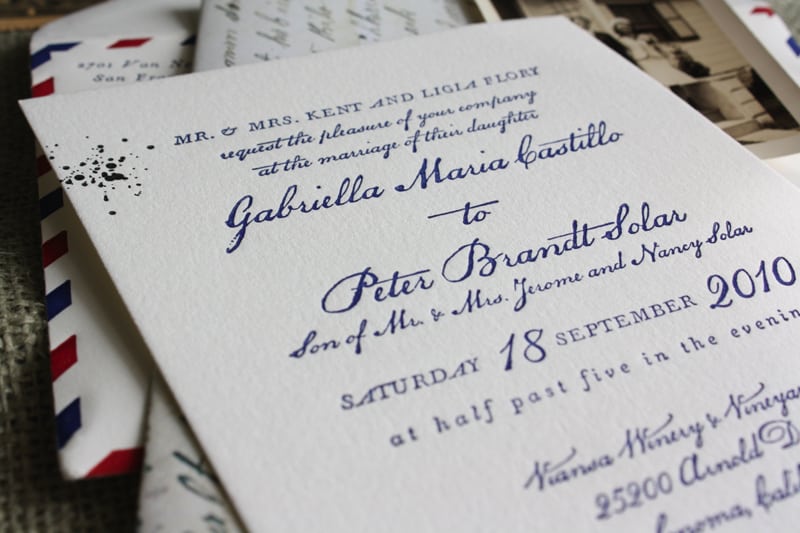 2701 Van N
San Fran
MR. & MRS. KENT AND LIGIA FLORY
request the pleasure of your company
at the marriage of their daughter
Gabriella Maria Castillo
to
Peter Brandt Solar
Son of Mr. & Mrs. Jerome and Nancy Solar
SATURDAY 18 SEPTEMBER 2010
at half past five in the evenin
Viansa Winery & Vineyar
25200 Arnold D
Sonoma, Cali